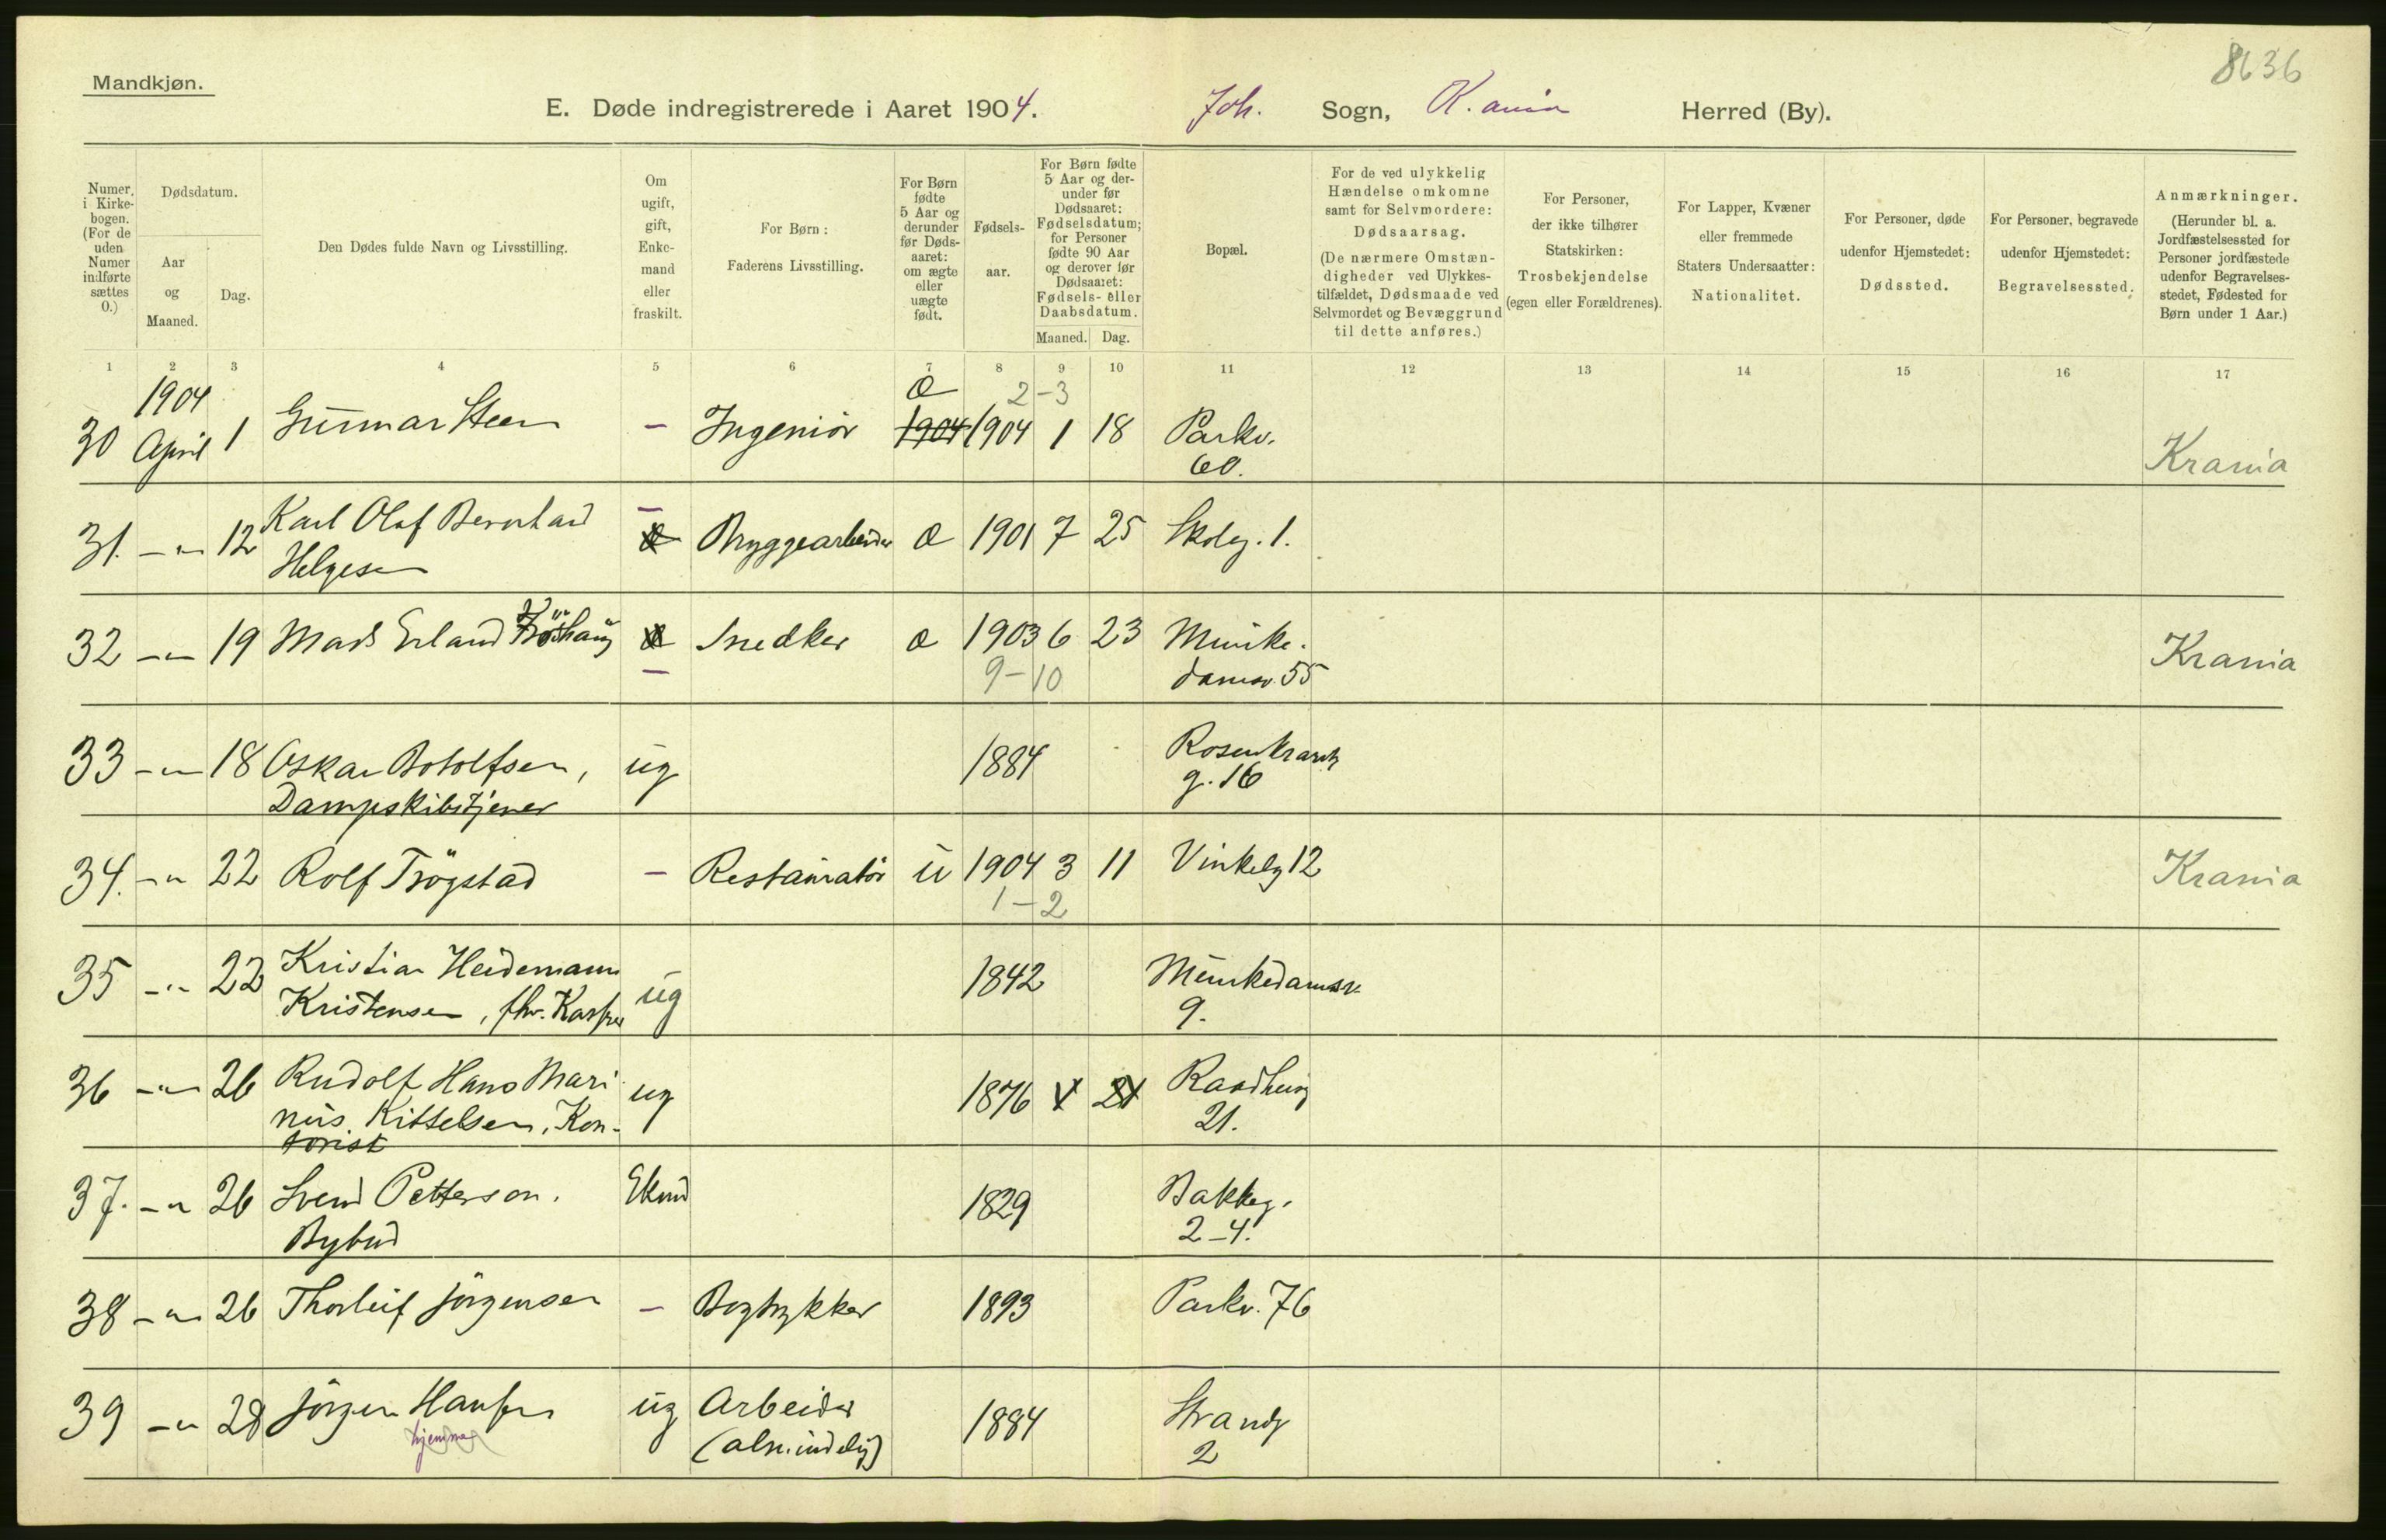 8636
Mandkjøn.
E. Døde indregistrerede i Aaret 1904. Joh. Sogn, K.ania Herred (By).
Numer i Kirke-bogen. (For de uden Numer indførte sættes 0.)
Dødsdatum.
Aar og Maaned.
Dag.
Den Dødes fulde Navn og Livsstilling.
Om ugift, gift, Enke-mand eller fraskilt.
For Børn: Faderens Livsstilling.
For Børn fødte 5 Aar og derunder før Døds-aaret: om ægte eller uægte født.
Fødsels-aar.
For Børn fødte 5 Aar og der-under før Dødsaaret: Fødselsdatum; for Personer fødte 90 Aar og derover før Dødsaaret: Fødsels- eller Daabsdatum.
Maaned. Dag.
Bopæl.
For de ved ulykkelig Hændelse omkomne samt for Selvmordere: Dødsaarsag. (De nærmere Omstæn-digheder ved Ulykkes-tilfældet, Dødsmaade ved Selvmordet og Bevæggrund til dette anføres.)
For Personer, der ikke tilhører Statskirken: Trosbekjendelse (egen eller Forældrenes).
For Lapper, Kvæner eller fremmede Staters Undersaatter: Nationalitet.
For Personer, døde udenfor Hjemstedet: Dødssted.
For Personer, begravede udenfor Hjemstedet: Begravelsessted.
Anmærkninger. (Herunder bl. a. Jordfæstelsessted for Personer jordfæstede udenfor Begravelses-stedet, Fødested for Børn under 1 Aar.)
1 2 3 4 5 6 7 8 9 10 11 12 13 14 15 16 17
1904 2-3
30 April 1 Gunnar Steen - Ingeniör 1904 1904 1 18 Parkv. 60. Krania
31. -"- 12 Karl Olaf Bernhard - Bryggearbeider 1901 7 25 Skoleg. 1.
Helgesen
32 -"- 19 Mads Erland Snedker 1903 6 23 Munke-
- 9-10 damsv. 55 Krania
33 -"- 18 Oskar Botolfsen, ug 1884 Rosenkrantz
Dampskibstjener g. 16
34. -"- 22 Rolf Trögstad - Restauratör u 1904 3 11 Vinkelg 12 Krania
1-2
35 -"- 22 Kristian Heidemann ug 1842 Munkedamsv.
Kristensen, fhv. 9.
36 -"- 26 Rudolf Hans Mari- ug 1876 Raadhusg
nus Kittelsen, Kon- 21.
torist
37. -"- 26 Svend Petterson. Ekmd 1829 Bakkeg.
Bybud 2-4.
38 -"- 26 Thorleif Jörgensen - Bogtrykker 1893 Parkv. 76
39 -"- 28 Jörgen Hansen ug Arbeider 1884 Strandg
hjemme (almindelig) 2